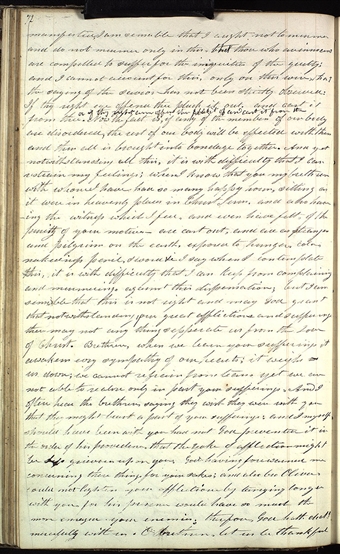 manifested, I am sensible that I ought not to murmur
and do not murmur only in this that those who are innocent
are compelled to suffer for the iniquities of the guilty;
and I cannot account for this, only on this wise, that
the saying of the savior has not been strictly observed:
If thy right eye offend thee pluck it out and cast it
from thee or if thy right arm offend thee pluck it off and cast it from thee
Now the fact is, if any of the members of our body
are disordered, the rest of our body will be affected with them
and then all is brought into bondage together. And yet
notwithstanding all this, it is with difficulty that I can
restrain my feelings; when I know that you my brethren
with whom I have had so many happy hours, sitting as
it were in heavenly places in Christ Jesus, and also hav-
ing the witness which I feel, and even have felt, of the
purity of your motives are cast out, and are as strangers
and pilgrims on the earth, exposed to hunger, cold
nakedness peril, sword &c I say when I contemplate
this, it is with difficulty that I can keep from complaining
and murmuring against this dispensation; but I am
sensible that this is not right and may God grant
that notwithstanding your great afflictions and sufferings
there may not any thing separate us from the love
of Christ. Brethren, when we learn your sufferings it
awakens every sympathy of our hearts; it weighs
us down; we cannot refrain from tears yet we are
not able to realize only in part your sufferings. And I
often hear the brethren saying they wish they were with you
that they might bear a part of your sufferings; and I myself
should have been with you had not God prevented it in
the order of his providence, that the yoke of affliction might
be less grievous upon you God having forewarned me
concerning these things for your sakes; and also Oliver
could not lighten your afflictions by tarrying longer
with you for his presence would have so much the
more enraged your enemies, therefore God hath dealt
mercifully with us. O brethren, let us be thankful